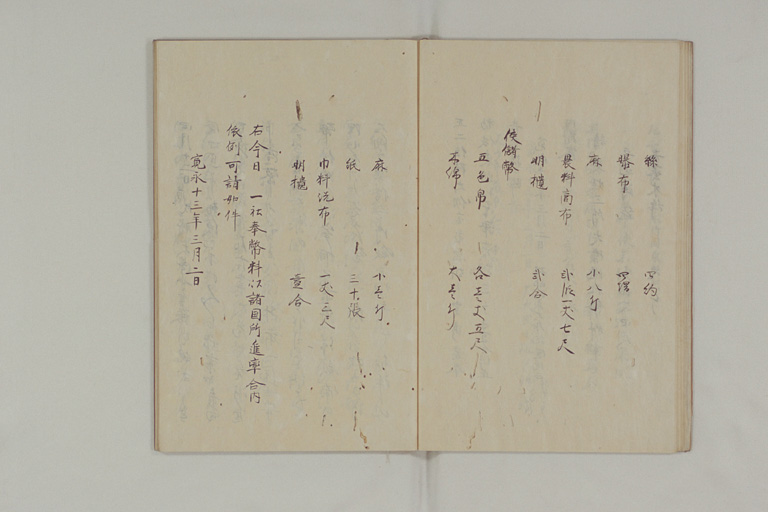 絲 四約
調布 四端
麻 小八斤
裹料商布 弐段一丈七尺
明櫃 弐合
使備幣
五色帛 各壱丈五尺
木綿 大壱斤
麻 小壱斤
紙 三十張
巾料洗布 一丈三尺
明櫃 壹合
右今日 一社奉幣料以諸国所進率合内
依例可請如件
寛永十三年三月二日